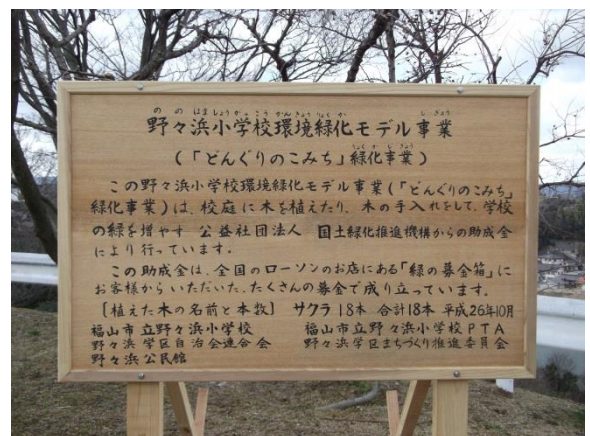 野々浜小学校環境緑化モデル事業
(「どんぐりのこみち」緑化事業)
この野々浜小学校環境緑化モデル事業(「どんぐりのこみち」
緑化事業)は、校庭に木を植えたり、木の手入れをして、学校
の緑を増やす 公益社団法人 国土緑化推進機構からの助成金
により行っています。
この助成金は、全国のローソンのお店にある「緑の募金箱」に
お客様からいただいた、たくさんの募金で成り立っています。
[植えた木の名前と本数] サクラ 18本 合計18本 平成26年10月
福山市立野々浜小学校 福山市立野々浜小学校PTA
野々浜学区自治会連合会 野々浜学区まちづくり推進委員会
野々浜公民館